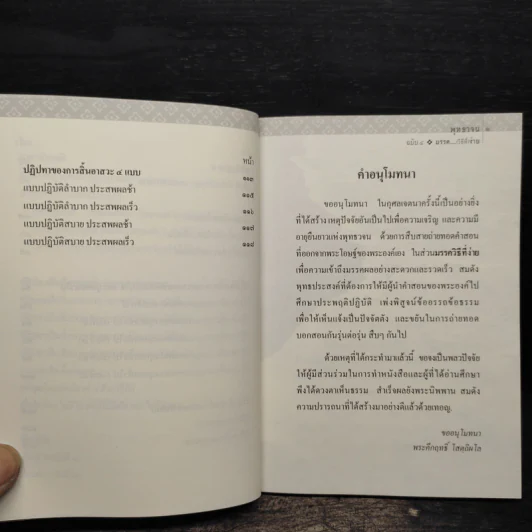 หน้า
ปฏิปทาของการสิ้นอาสวะ ๔ แบบ ๑๑๓
แบบปฏิบัติลำบาก ประสพผลช้า ๑๑๕
แบบปฏิบัติลำบาก ประสพผลเร็ว ๑๑๖
แบบปฏิบัติสบาย ประสพผลช้า ๑๑๗
แบบปฏิบัติสบาย ประสพผลเร็ว ๑๑๘
พุทธวจน
ฉบับ ๔ ❖ มรรค....วิธีที่ง่าย
คำอนุโมทนา
ขออนุโมทนา ในกุศลเจตนาครั้งนี้เป็นอย่างยิ่ง
ที่ได้สร้าง เหตุปัจจัยอันเป็นไปเพื่อความเจริญ และความมี
อายุยืนยาวแห่งพุทธวจน ด้วยการสืบสายถ่ายทอดคำสอน
ที่ออกจากพระโอษฐ์ของพระองค์เอง ในส่วนมรรควิธีที่ง่าย
เพื่อความเข้าถึงมรรคผลอย่างสะดวกและรวดเร็ว สมดัง
พุทธประสงค์ที่ต้องการให้มีผู้นำคำสอนของพระองค์ไป
ศึกษาประพฤติปฏิบัติ เพ่งพิสูจน์ข้ออรรถข้อธรรม
เพื่อให้เห็นแจ้งเป็นปัจจัตตัง และขยันในการถ่ายทอด
บอกสอนกันรุ่นต่อรุ่น สืบๆ กันไป
ด้วยเหตุที่ได้กระทำมาแล้วนี้ ขอจงเป็นพลวปัจจัย
ให้ผู้มีส่วนร่วมในการทำหนังสือและผู้ที่ได้อ่านศึกษา
พึงได้ดวงตาเห็นธรรม สำเร็จผลยังพระนิพพาน สมดัง
ความปรารถนาที่ได้สร้างมาอย่างดีแล้วด้วยเทอญ.
ขออนุโมทนา
พระคึกฤทธิ์ โสตฺถิผโล